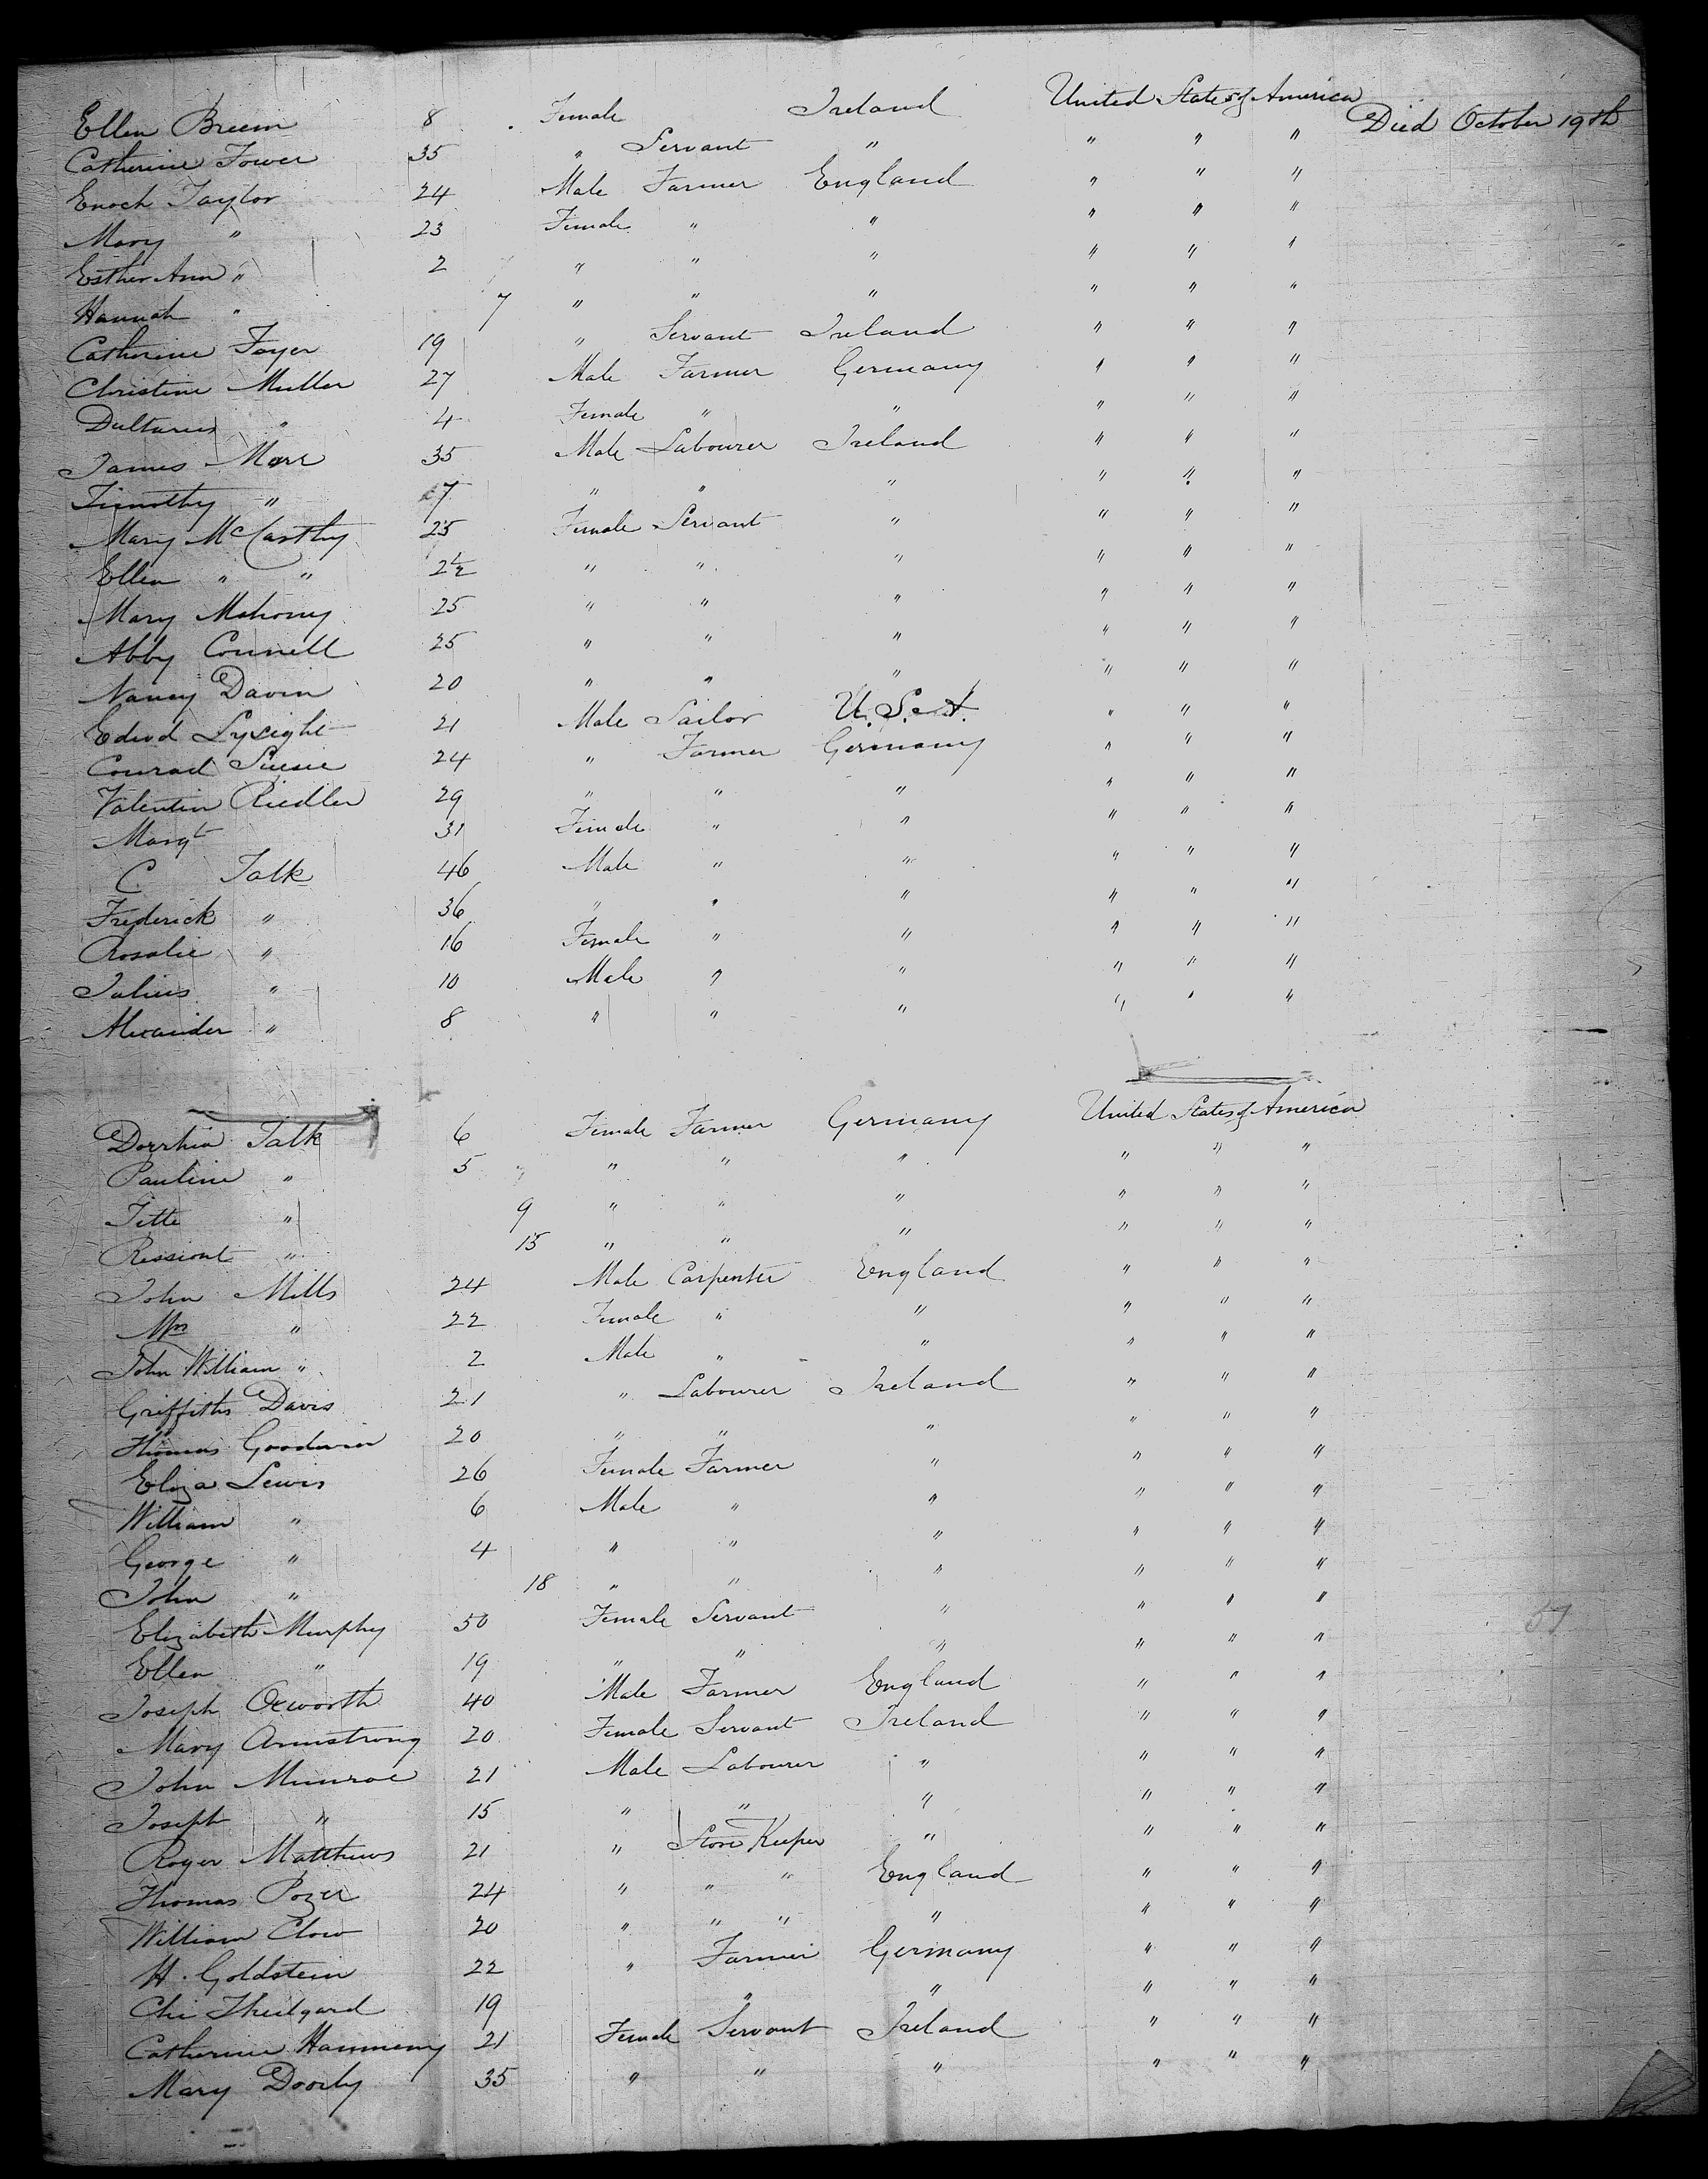 Ellen Breein 8 Female Ireland United States of America Died October 19th
Catherine Tower 35 " Servant " " " "
Enoch Taylor 24 Male Farmer England " " "
Mary " 23 Female " " " " "
Esther Ann " 2 " " " " " "
Hannah " 7 " " " " " "
Catherine Foyer 19 " Servant Ireland " " "
Christine Muller 27 Male Farmer Germany " " "
" 4 Female " " " " "
James Marr 35 Male Labourer Ireland " " "
Timothy " 7 " " " " " "
Mary McCarthy 25 Female Servant " " " "
Ellen " " 2½ " " " " " "
Mary Mahony 25 " " " " " "
Abby Connell 25 " " " " " "
Nancy Davin 20 " " " " " "
Edwd Lysight 21 Male Sailor U.S.A. " " "
Conrad 24 " Farmer Germany " " "
Valentin Riedler 29 " " " " " "
Margt 31 Female " " " " "
C. Falk 46 Male " " " " "
Frederick " 36 " " " " " "
Rosalie " 16 Female " " " " "
Julius " 10 Male " " " " "
Alexander " 8 " " " " " "
Dorrhia Falk 6 Female Farmer Germany United States of America
Pauline " 5 " " " " " "
Titte " 9 " " " " " "
" 15 " " " " " "
John Mills 24 Male Carpenter England " " "
Mrs " 22 Female " " " " "
John William " 2 Male " " " " "
Griffiths Davis 21 " Labourer Ireland " " "
Thomas Goodwin 20 " " " " " "
Eliza Lewis 26 Female Farmer " " " "
William " 6 Male " " " " "
George " 4 " " " " " "
John " 18 " " " " " "
Elizabeth Murphy 50 Female Servant " " " "
57
Ellen " 19 " " " " " "
Joseph Oxworth 40 Male Farmer England " " "
Mary Armstrong 20 Female Servant Ireland " " "
John Munroe 21 Male Labourer " " " "
Joseph " 15 " " " " " "
Roger Matthews 21 " Store Keeper " " " "
Thomas Pozer 24 " " " England " " "
William Clow 20 " " " " " " "
H. Goldstein 22 " Farmer Germany " " "
Chi Theilgard 19 " " " " "
Catherine Hannieny 21 Female Servant Ireland " " "
Mary Doorly 35 " " " " " "